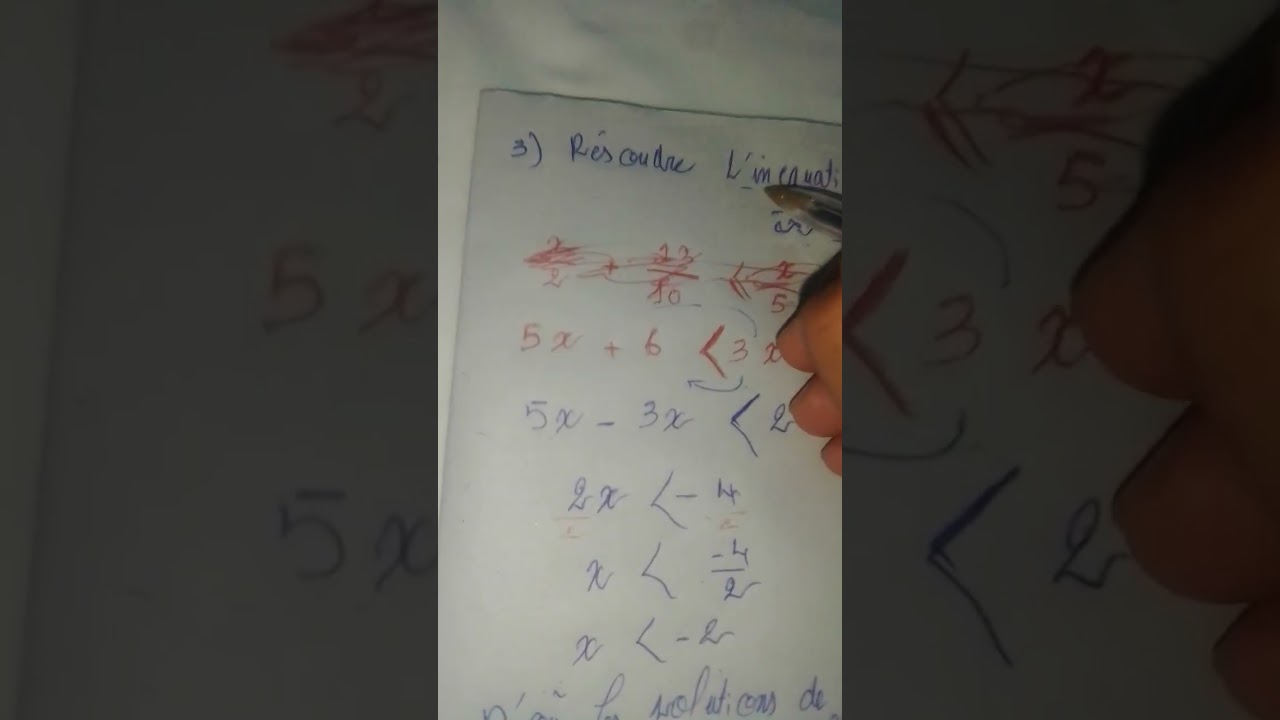 3) Résoudre L'inequati
5x + 6 < 3x
5x - 3x < 2
2x < - 4
x < -4/2
x < -2
les solutions de